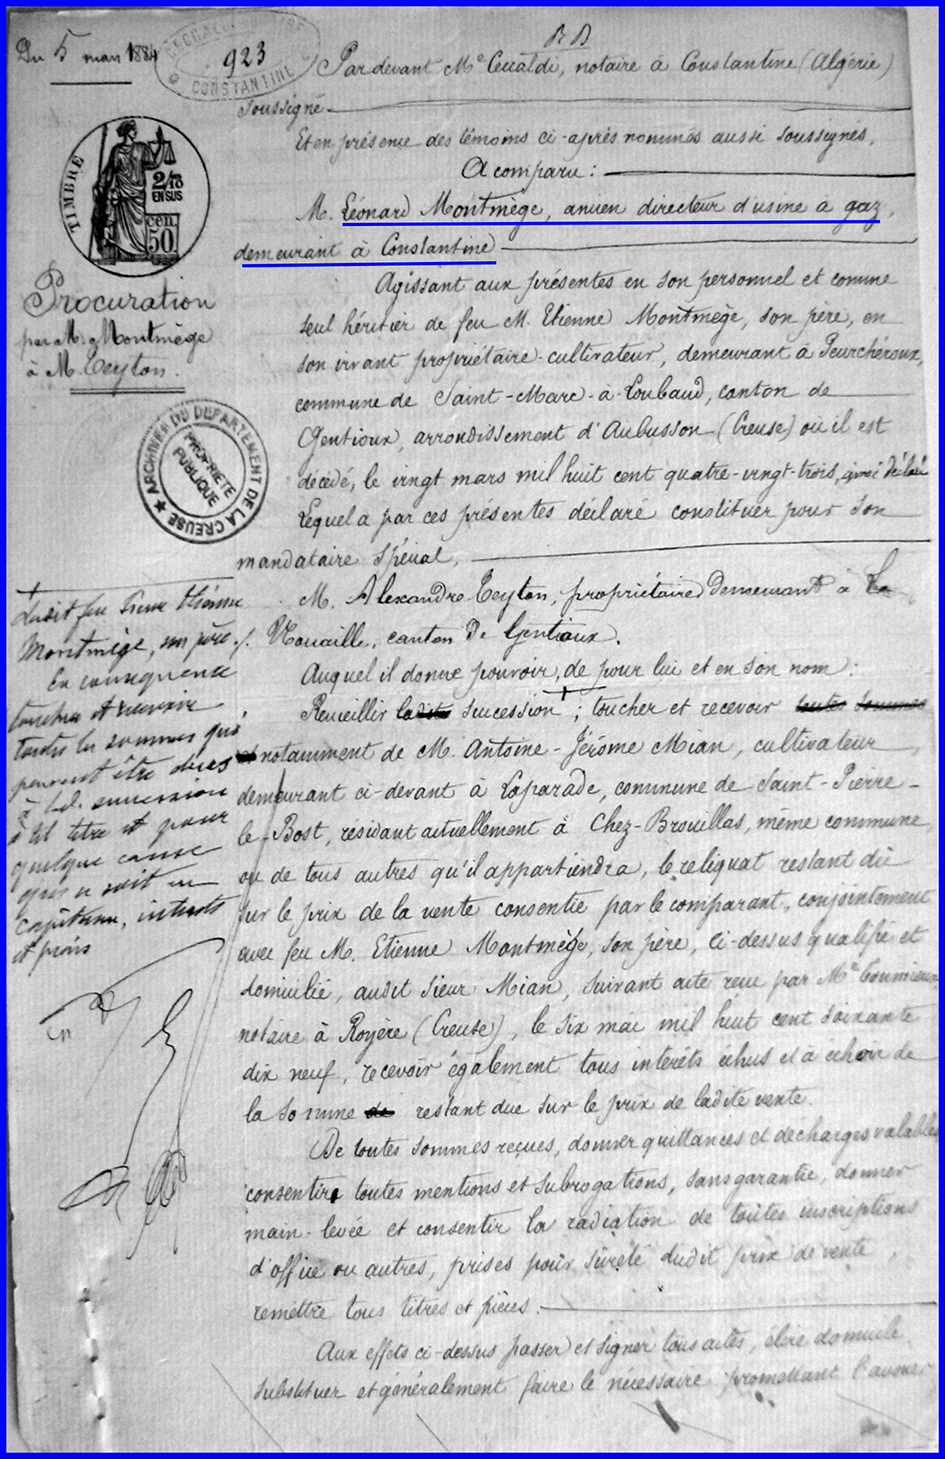 Du 5 mars 1884
923
CONSTANTINE
Par devant Me Ceccaldi, notaire à Constantine (Algérie)
soussigné
Et en présence des témoins ci-après nommés aussi soussignés,
A comparu :
M. Léonard Montmège, ancien directeur d'usine à gaz,
demeurant à Constantine
TIMBRE
2/10
EN SUS
50
cen
Procuration
par M. Montmège
à M. Ceyton.
Agissant aux présentes en son personnel et comme
seul héritier de feu M. Etienne Montmège, son père, en
son vivant propriétaire-cultivateur, demeurant à Peurchéroux,
commune de Saint-Marc-à-Loubaud, canton de
Gentioux, arrondissement d'Aubusson (Creuse) où il est
décédé, le vingt mars mil huit cent quatre-vingt-trois, ainsi déclaré
Lequel a par ces présentes déclaré constituer pour son
mandataire spécial,
ARCHIVES DU DEPARTEMENT DE LA CREUSE
PROPRIETE
PUBLIQUE
M. Alexandre Ceyton, propriétaire demeurant à La
Nouaille, canton de Gentioux.
Auquel il donne pouvoir, de pour lui et en son nom :
Recueillir ladite succession ; toucher et recevoir toutes sommes
et notamment de M. Antoine-Jérôme Mian, cultivateur
demeurant ci-devant à Laparade, commune de Saint-Pierre-
le-Bost, résidant actuellement à Chez-Brouillas, même commune,
ou de tous autres qu'il appartiendra, le reliquat restant dû
sur le prix de la vente consentie par le comparant, conjointement
avec feu M. Etienne Montmège, son père, ci-dessus qualifié et
domicilié, audit sieur Mian, suivant acte reçu par Me Coumieux
notaire à Royère (Creuse), le six mai mil huit cent soixante
dix neuf, recevoir également tous intérêts échus et à échoir de
la somme de restant due sur le prix de ladite vente.
De toutes sommes reçues, donner quittances et décharges valables
consentir toutes mentions et subrogations, sans garantie, donner
main-levée et consentir la radiation de toutes inscriptions
d'office ou autres, prises pour sûreté dudit prix de vente,
remettre tous titres et pièces.
Aux effets ci-dessus passer et signer tous actes, élire domicile
substituer et généralement faire le nécessaire promettant l'avouer
dudit feu sieur Etienne
Montmège, son père ./.
En conséquence
toucher et recevoir
toutes les sommes qui
peuvent être dues
à lad. succession
à tel titre et pour
quelque cause
que ce soit en
capitaux, intérêts
et frais